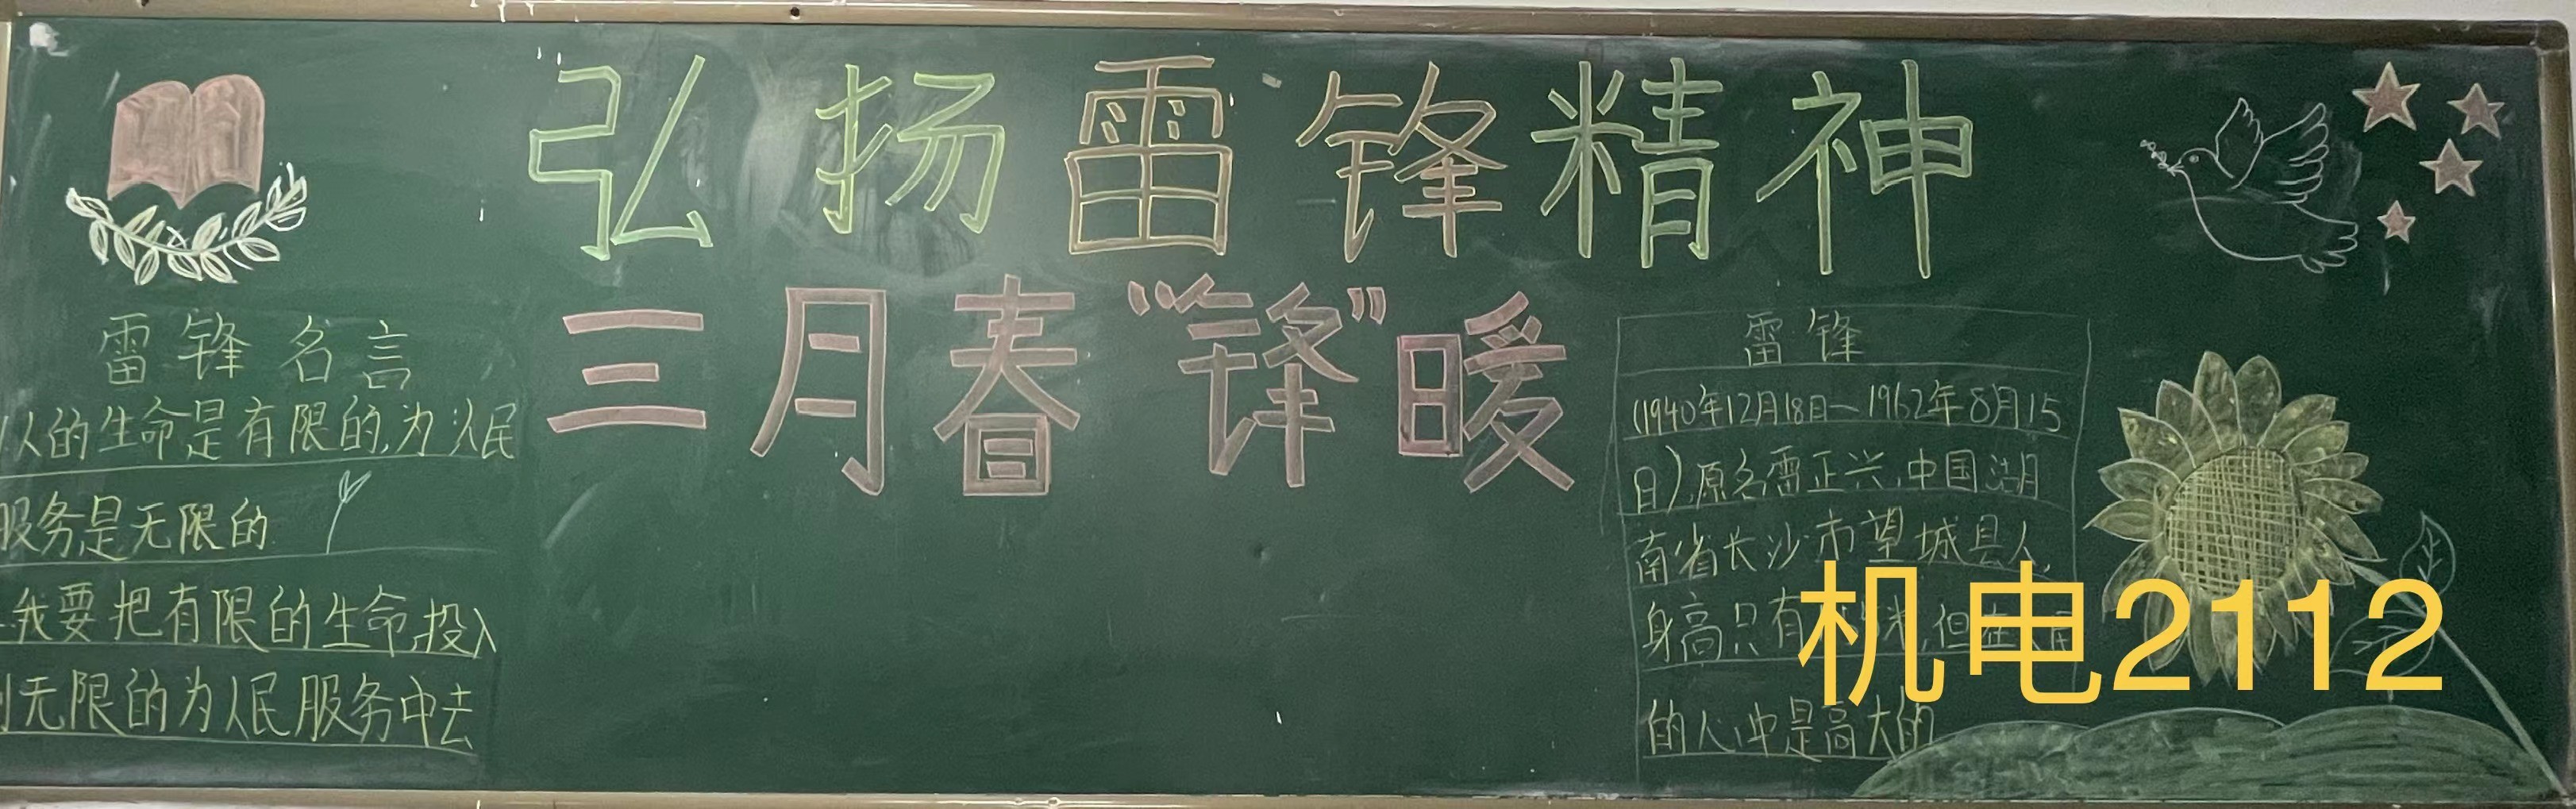 弘扬雷锋精神
三月春“锋”暖
雷锋名言
人的生命是有限的,为人民
服务是无限的
我要把有限的生命,投入
到无限的为人民服务中去
雷锋
(1940年12月18日—1962年8月15
日),原名雷正兴,中国湖
南省长沙市望城县人
身高只有 米,但在
的心中是高大的
机电2112